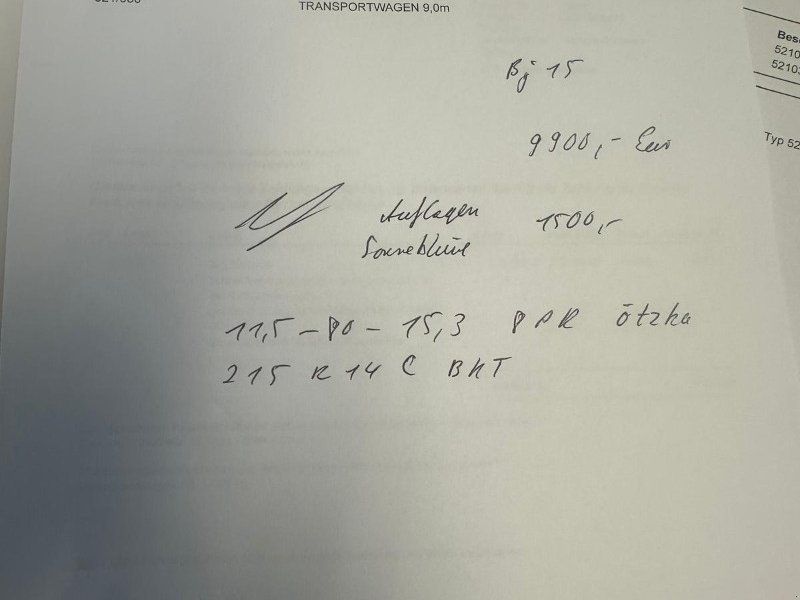 TRANSPORTWAGEN 9,0m
Bes
5210
5210
Typ 52
Bj 15
9900,- Euro
Auflagen 1500,-
Sonneblume
11,5 - 80 - 15,3 8 PR Ötzka
215 R 14 C BKT